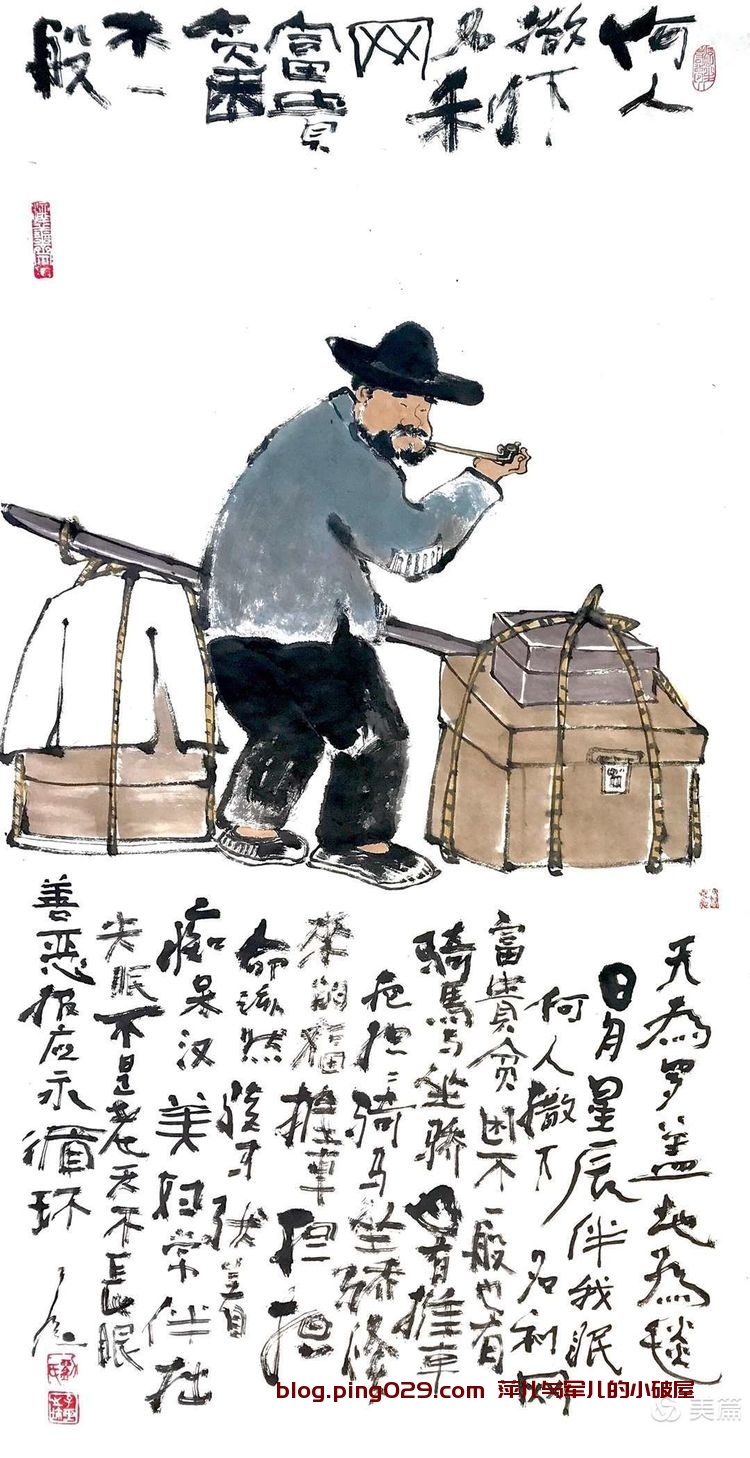 何人
撒下
名利
网
富貴
贫困
不一
般
天為罗盖地為毯
日月星辰伴我眠
何人撒下名利网
富貴贫困不一般也有
骑馬坐骄也有推車
担骑马坐骄修
來的福推車担担
命该然
痴呆汉美妇常伴拙
夫眠不是老天不長眼
善恶报应永循环
blog.ping029.com 萍儿与军儿的小破屋
美篇